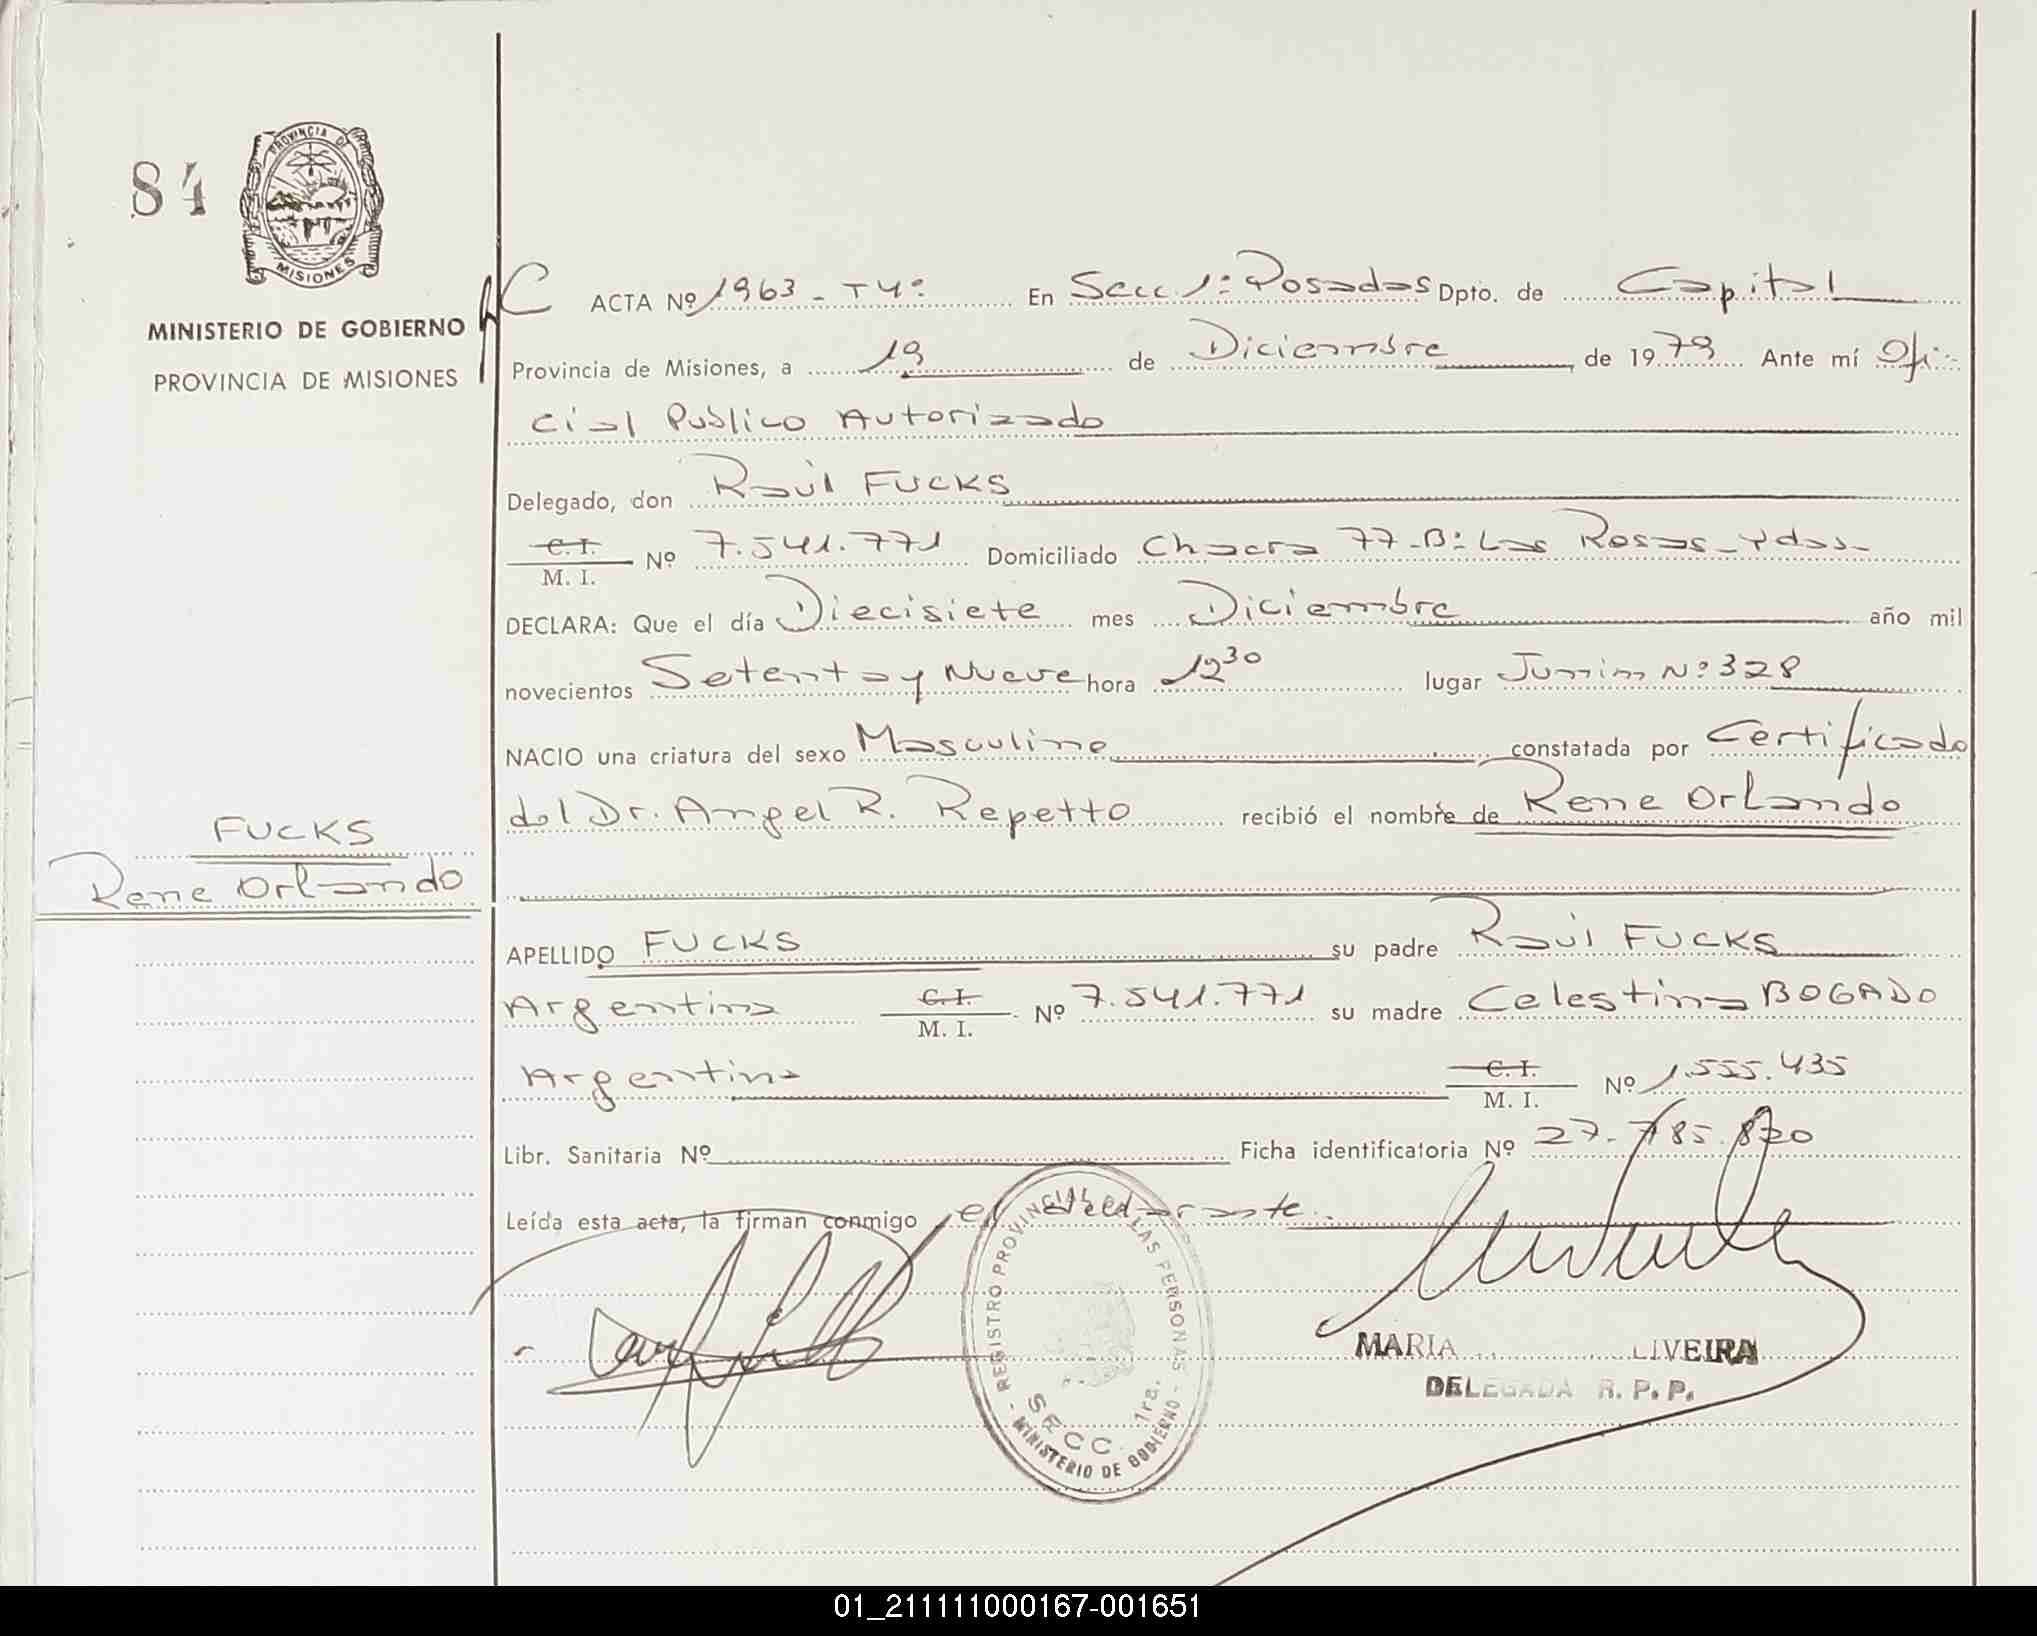 84
PROVINCIA DE
MISIONES
MINISTERIO DE GOBIERNO
PROVINCIA DE MISIONES
C ACTA Nº 1963 - Tº 4º En Secc 1ª Posadas Dpto. de Capital
Provincia de Misiones, a 19 de Diciembre de 1979 Ante mí Ofi-
cial Publico Autorizado
Delegado, don Raúl FUCKS
C. I. / M. I. Nº 7.541.771 Domiciliado Chacra 77-Bº Las Rosas-Pdas-
DECLARA: Que el día Diecisiete mes Diciembre año mil
novecientos Setenta y Nueve hora 12 30 lugar Junin Nº 328
NACIO una criatura del sexo Masculino constatada por Certificado
del Dr. Angel R. Repetto recibió el nombre de Rene Orlando
FUCKS
Rene Orlando
APELLIDO FUCKS su padre Raúl FUCKS
Argentino C. I. / M. I. Nº 7.541.771 su madre Celestina BOGADO
Argentina C. I. / M. I. Nº 1.555.435
Libr. Sanitaria Nº Ficha identificatoria Nº 27.785.820
Leída esta acta, la firman conmigo el declarante.
REGISTRO PROVINCIAL LAS PERSONAS
SECC. 1ra.
MINISTERIO DE GOBIERNO
MARIA LIVEIRA
DELEGADA R. P. P.
01_211111000167-001651